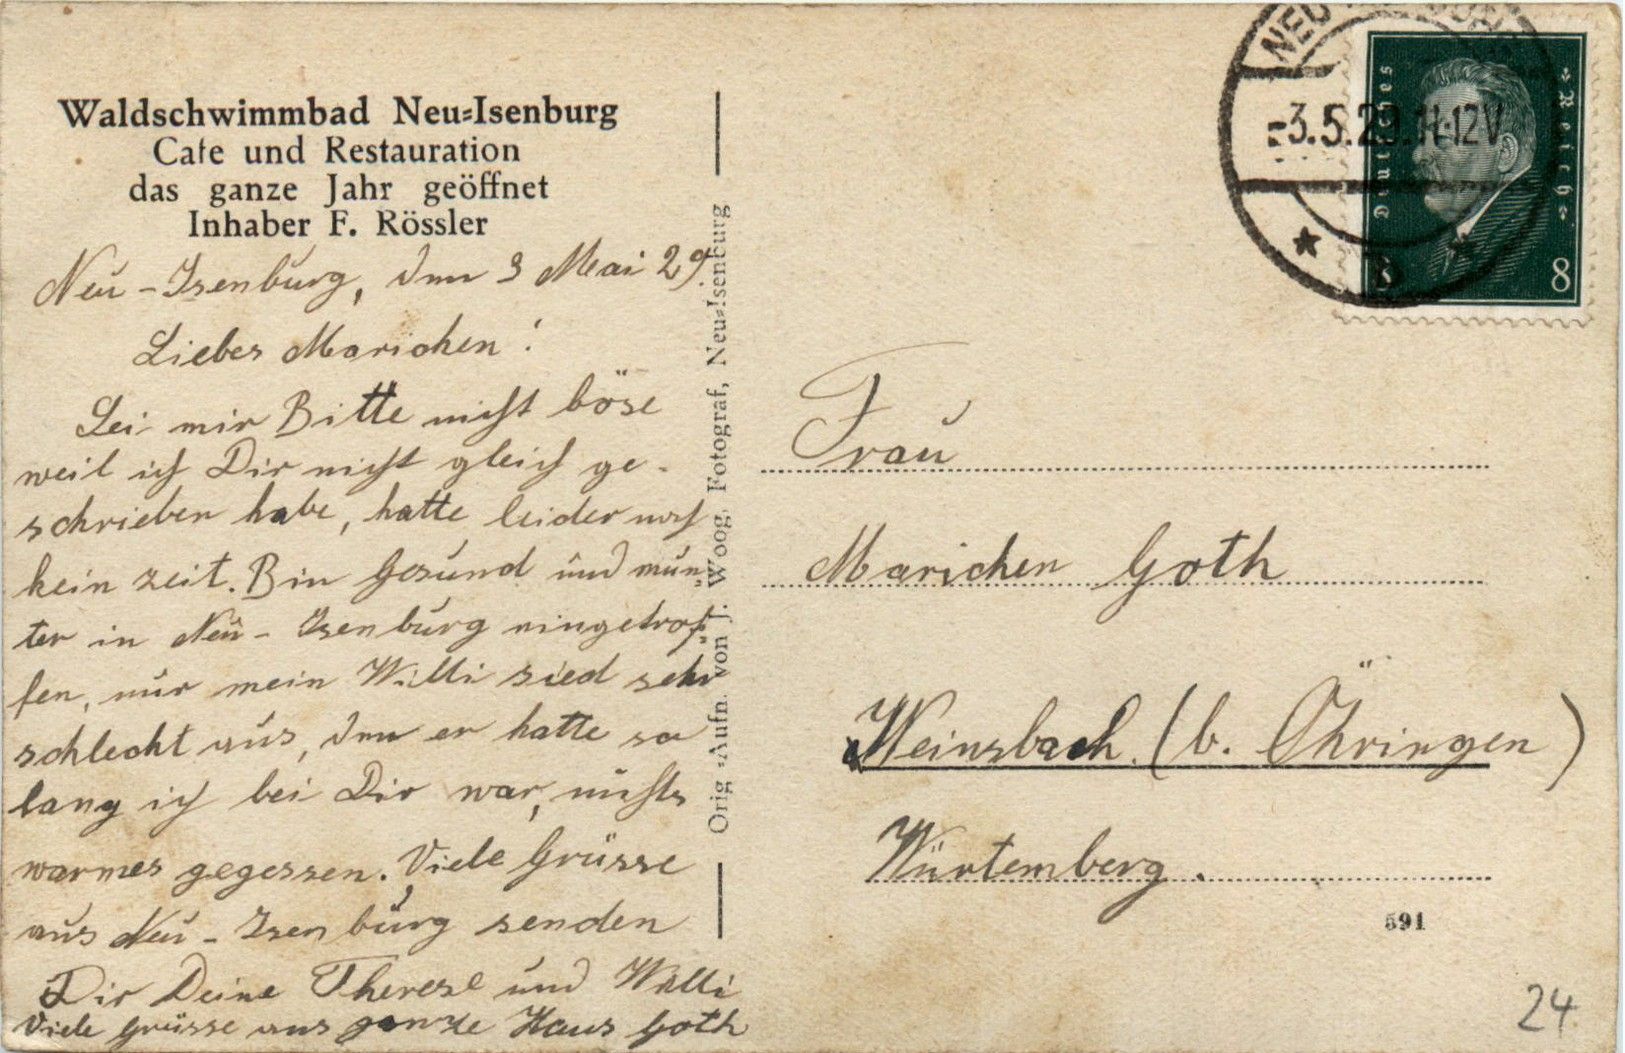 Waldschwimmbad Neu-Isenburg
Cafe und Restauration
das ganze Jahr geöffnet
Inhaber F. Rössler
Neu-Isenburg, den 3 Mai 29.
Liebes Marichen!
Sei mir Bitte nicht böse
weil ich Dir nicht gleich ge-
schrieben habe, hatte leider noch
kein zeit. Bin Gesund und mun
ter in Neu-Isenburg eingetrof
fen, nur mein Willi sied sehr
schlecht aus, den er hatte so
lang ich bei Dir war, nichts
warmes gegessen. Viele Grüsse
aus Neu-Isenburg senden
Dir Deine Therese und Willi
Viele Grüsse ans ganze Haus Goth
Orig.-Aufn. von J. Woog, Fotograf, Neu-Isenburg
Deutsches Reich
8 8
-3.5.29.11-12V
Frau
Marichen Goth
Weinsbach (b. Öhringen)
Würtemberg.
591
24